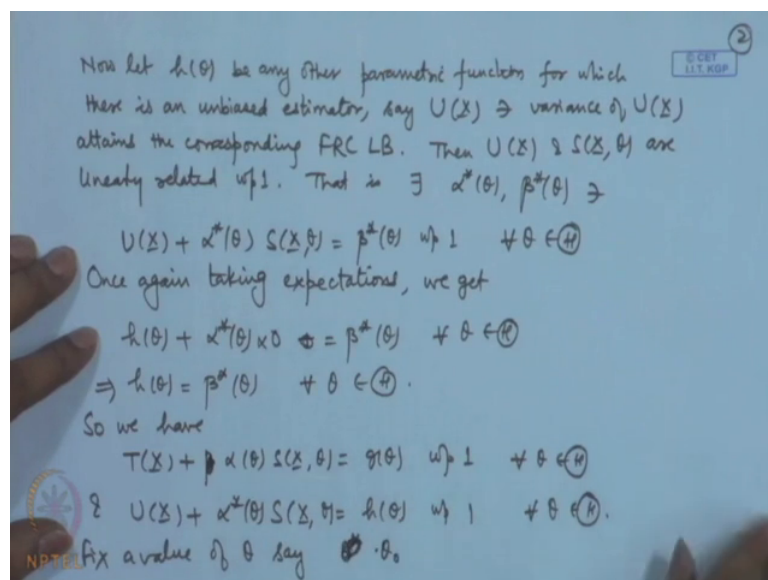 2
© CET
I.I.T. KGP
Now let h(θ) be any other parametric function for which
there is an unbiased estimator, say U(X) ∋ variance of U(X)
attains the corresponding FRC LB. Then U(X) & S(X, θ) are
linearly related wp1. That is ∃ α*(θ), β*(θ) ∋
U(X) + α*(θ) S(X, θ) = β*(θ) wp 1 ∀ θ ∈ Ⓗ
Once again taking expectations, we get
h(θ) + α*(θ) x 0 = β*(θ) ∀ θ ∈ Ⓗ
⇒ h(θ) = β*(θ) ∀ θ ∈ Ⓗ.
So we have
T(X) + α(θ) S(X, θ) = g(θ) wp 1 ∀ θ ∈ Ⓗ
& U(X) + α*(θ) S(X, θ) = h(θ) wp 1 ∀ θ ∈ Ⓗ.
Fix a value of θ say θ₀
NPTEL